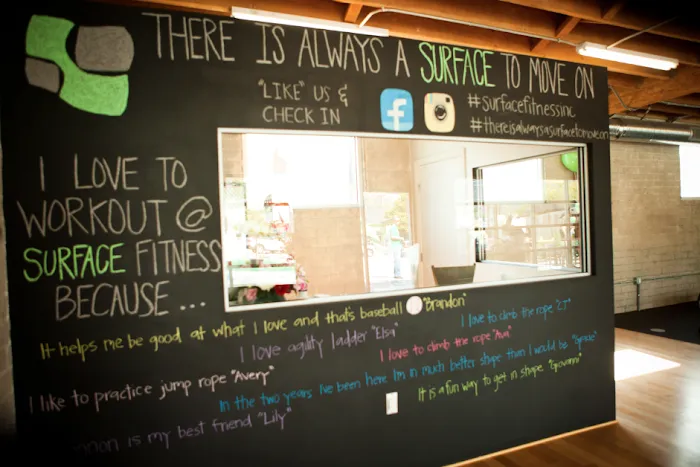 THERE IS ALWAYS A SURFACE TO MOVE ON
"LIKE" US &
CHECK IN
#surfacefitnessinc
#thereisalwaysasurfacetomoveon
I LOVE TO
WORKOUT @
SURFACE FITNESS
BECAUSE ...
It helps me be good at what I love and that's baseball "Brandon"
I love to climb the rope "CJ"
I love agility ladder "Elsa"
I love to climb the rope "Ava"
I like to practice jump rope "Avery"
In the two years I've been here Im in much better shape than I would be
It is a fun way to get in shape "Giovanni"
is my best friend "Lily"